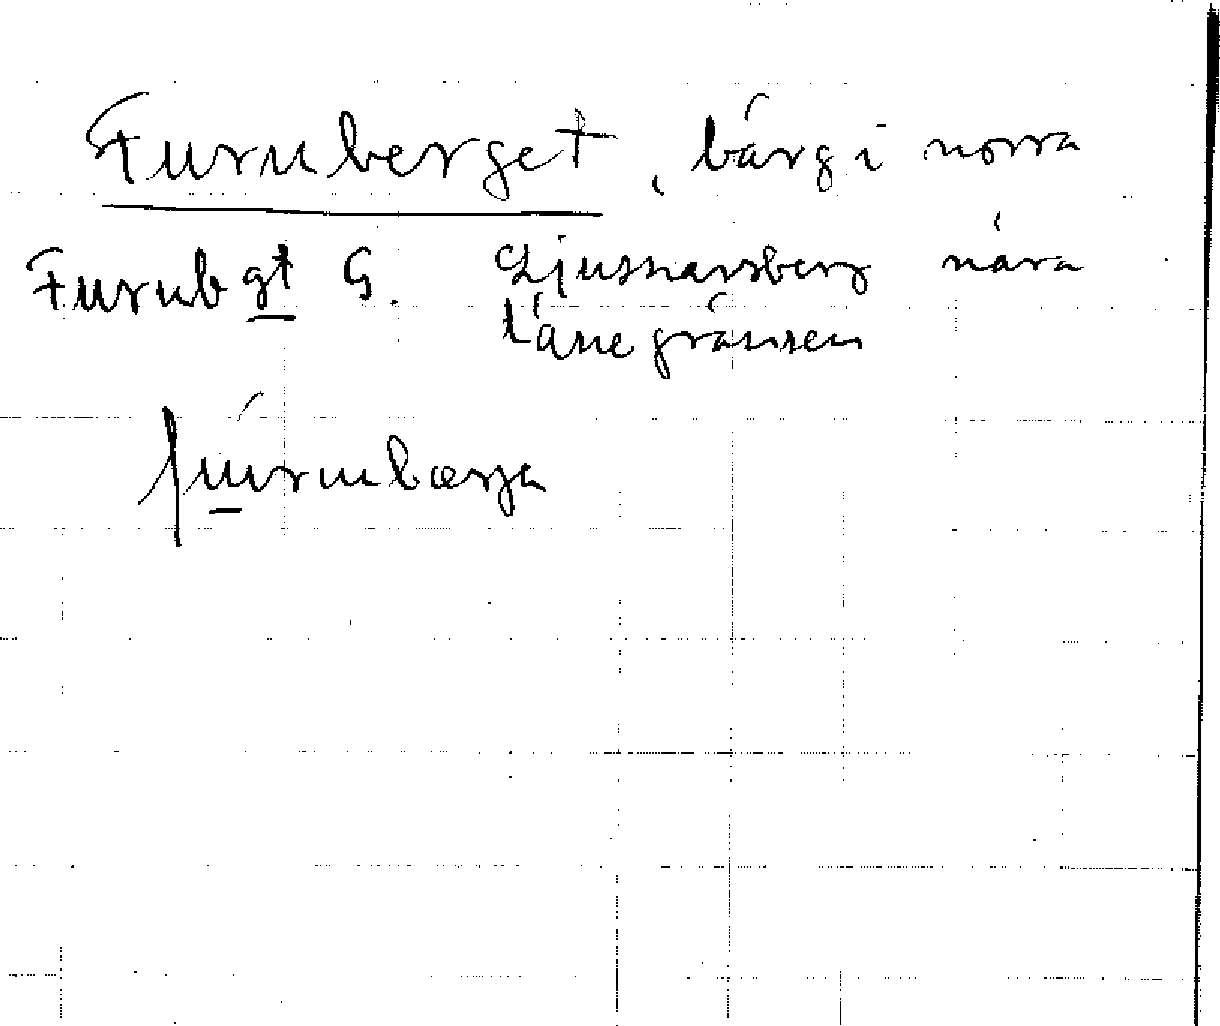 Furuberget, bärg i norra
Furubgt G. Ljusnarsberg nära
länsgränsen
furubærja